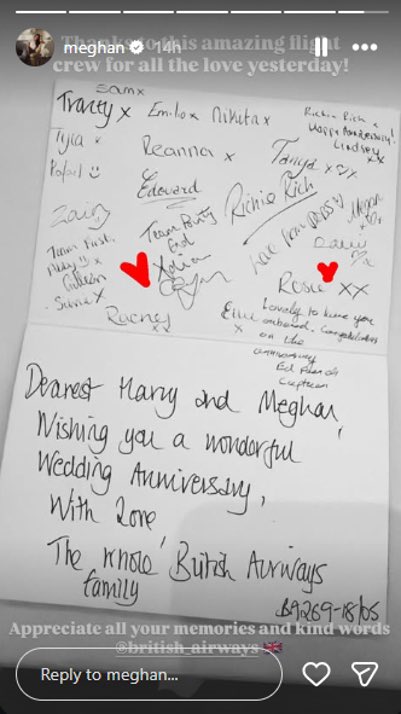 meghan 14h
Thanks to this amazing flight
crew for all the love yesterday!
Samx
Tracey x Emilio x Nikita x
Richie Rich x
Happy Anniversary!
Lindsey
xx
Tyla x
Reanna x
Tanya x
Rafael
Edouard
Richie Rich
Megan
Zain
Team Party
End
Love from
Team First.
Rosie xx
Rachel
xx
Ellie
x
Lovely to have you
onboard. Congratulations
on the
anniversary
Ed
Captain
Dearest Harry and Meghan,
Wishing you a wonderful
Wedding Anniversary,
With Love,
The whole British Airways
family
BA269-18/05
Appreciate all your memories and kind words
@british_airways 🇬🇧
Reply to meghan...